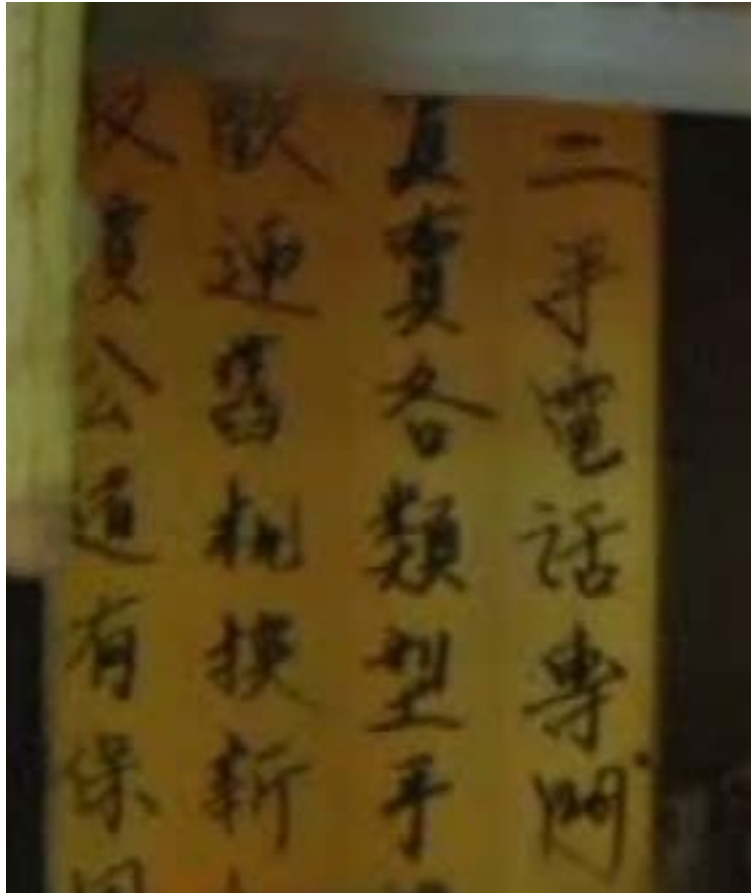 二手電話專門
買賣各類型手
歡迎舊機換新
收買公道有保